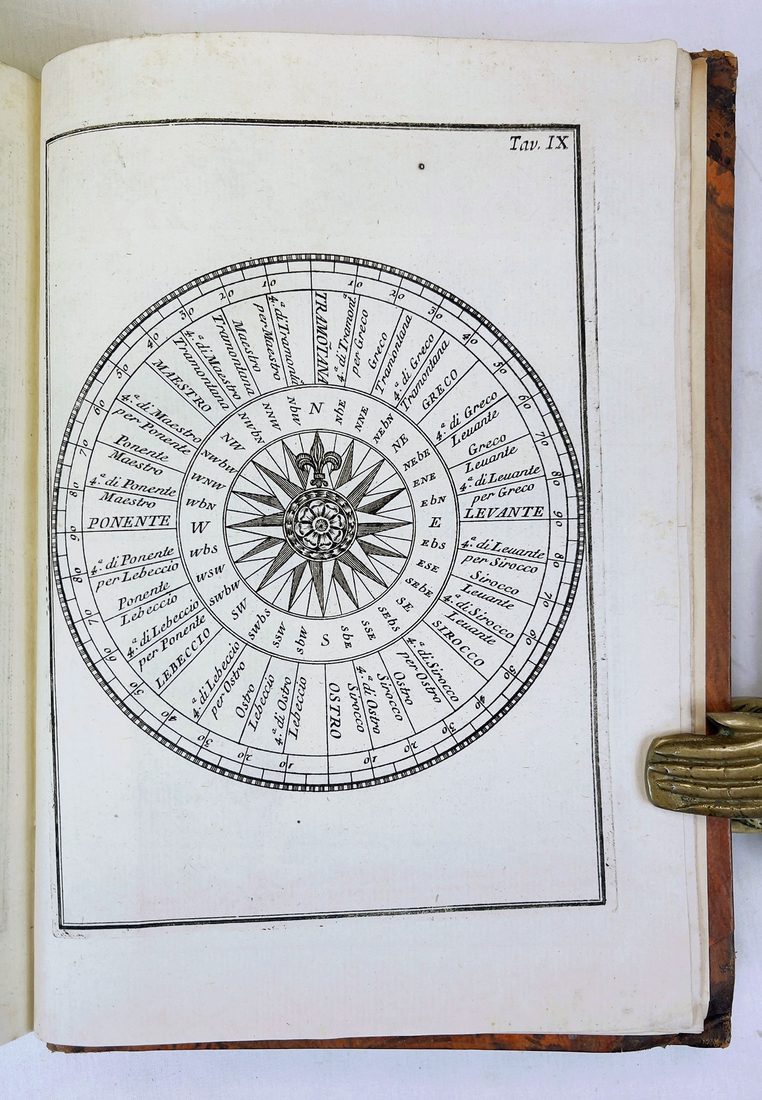 Tav. IX
TRAMOTANA
4.ª di Tramont.ª
per Greco
Greco
Tramontana
4.ª di Greco
Tramontana
GRECO
4.ª di Greco
Leuante
Greco
Leuante
4.ª di Leuante
per Greco
LEVANTE
4.ª di Leuante
per Sirocco
Sirocco
Leuante
4.ª di Sirocco
Leuante
SIROCCO
4.ª di Sirocco
per Ostro
Ostro
Sirocco
4.ª di Ostro
Sirocco
OSTRO
4.ª di Ostro
Lebeccio
Ostro
Lebeccio
4.ª di Lebeccio
per Ostro
LEBECCIO
4.ª di Lebeccio
per Ponente
Ponente
Lebeccio
4.ª di Ponente
per Lebeccio
PONENTE
4.ª di Ponente
Maestro
Ponente
Maestro
4.ª di Maestro
per Ponente
MAESTRO
4.ª di Maestro
Tramondana
Maestro
Tramondana
4.ª di Tramont.ª
per Maestro
10 20 30 40 50 60 70 80 90
80 70 60 50 40 30 20 10
10 20 30 40 50 60 70 80 90
80 70 60 50 40 30 20 10
N
NbE
NNE
NEbN
NE
NEbE
ENE
EbN
E
EbS
ESE
SEbE
SE
SEbS
SSE
SbE
S
SbW
SSW
SWbS
SW
SWbW
WSW
WbS
W
WbN
WNW
NWbW
NW
NWbN
NNW
NbW